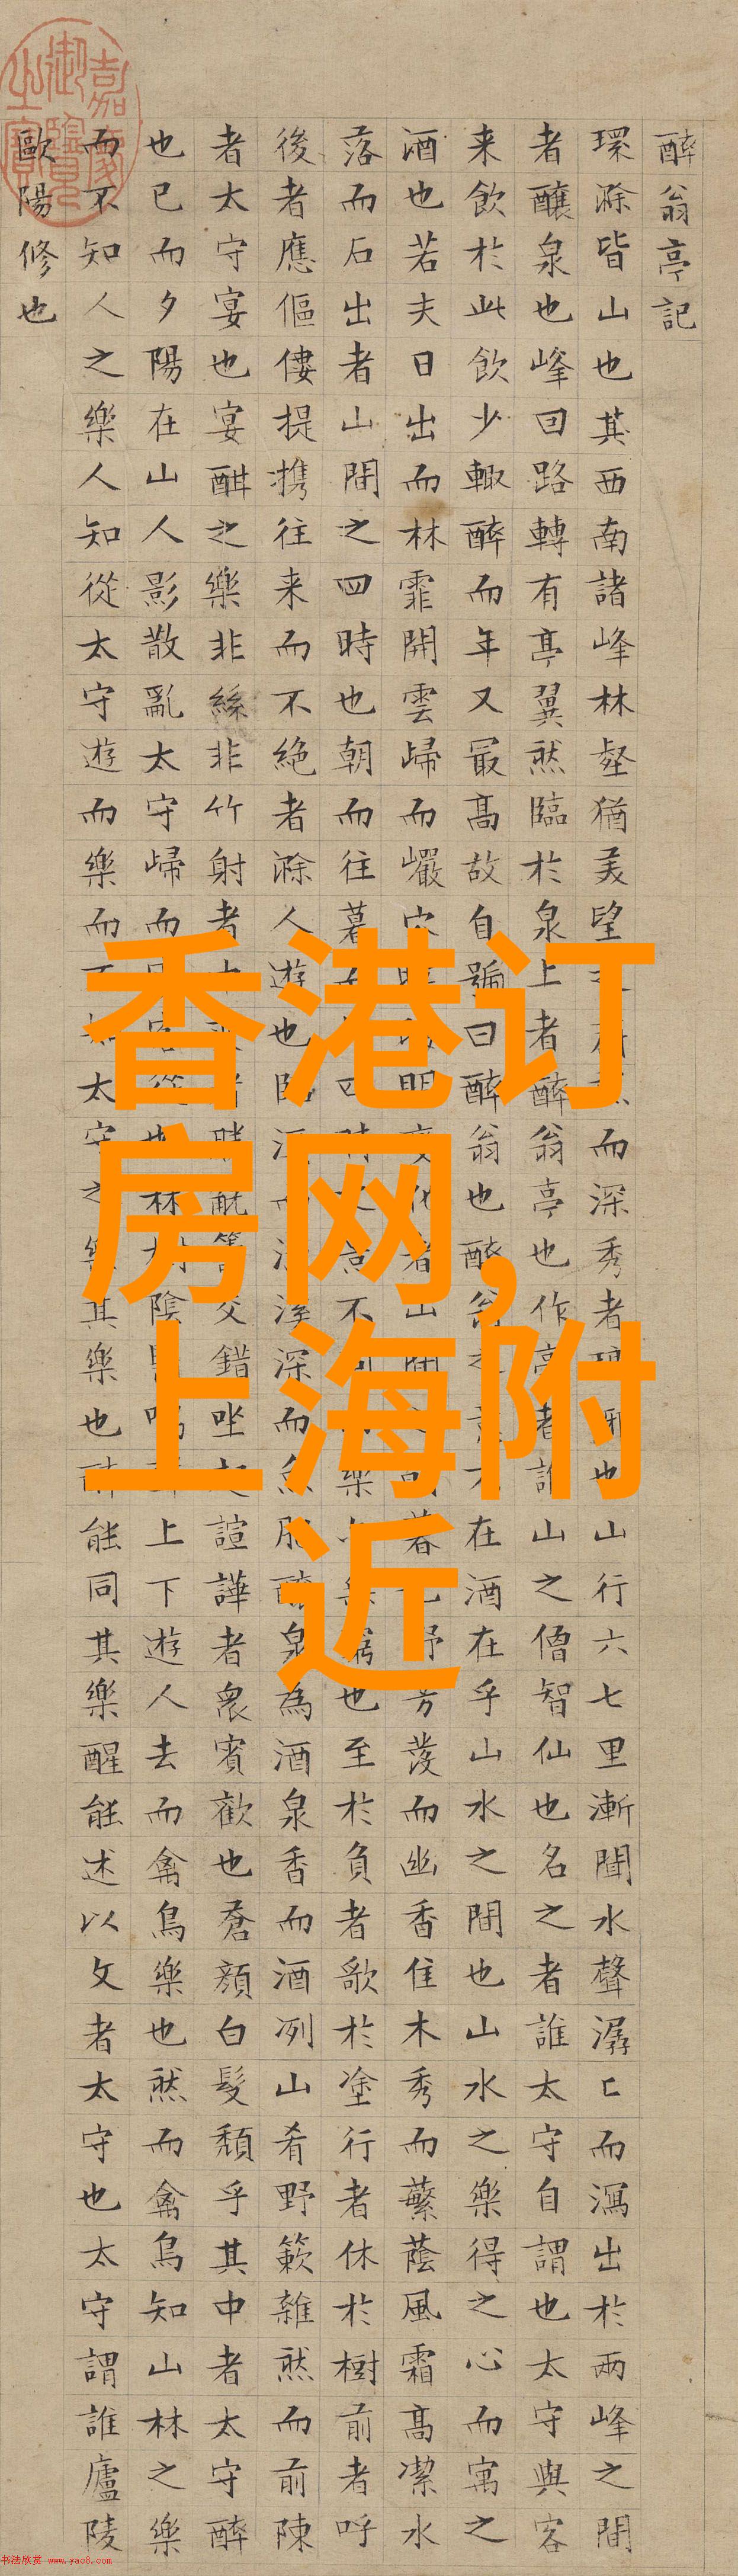 醉翁亭記
環滁皆山也其西南諸峰林壑猶美望而深秀者也山行六七里漸聞水聲潺〻而瀉出於兩峰之間
者釀泉也峰回路轉有亭翼然臨於泉上者醉翁亭也作亭者誰山之僧智仙也名之者誰太守自謂也太守與客
来飲於此飲少輙醉而年又最高故自號曰醉翁也醉翁之意不在酒在乎山水之間也山水之樂得之心而寓之
酒也若夫日出而林霏開雲歸而巖穴明變化者山間暮也野芳發而幽香佳木秀而蘩蔭風霜高潔水
落而石出者山間之四時也朝而往暮而四時之景不樂窮也至於負者歌於塗行者休於樹前者呼
後者應傴僂提携往来而不絶者滁人遊也臨溪而漁溪深而魚肥釀泉為酒泉香而酒冽山肴野簌雜然而前陳
者太守宴也宴酣之樂非絲非竹射者中奕者勝觥籌交錯坐起諠譁者衆賓歡也蒼顏白髮頽乎其中者太守醉
也已而夕陽在山人影散亂太守歸而客從也林樹陰翳鳴聲上下遊人去而禽鳥樂也然而禽鳥知山林之樂
而不知人之樂人知從太守遊而樂而不知太守之樂其樂也醉能同其樂醒能述以文者太守也太守謂誰廬陵
歐陽修也
嘉慶御覽之寶
香港订
房网,
上海附
近
书法欣赏 www.yac8.com